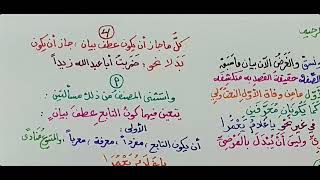 كلُّ ما جاز أن يكون عطف بيان، جاز أن يكون
بدلاً نحو: ضربتُ أبا عبدِ الله زيداً
واستثنى المصنف من ذلك مسألتين
يتعين فيهما كون التابع عطف بيان
الأولى:
أن يكون التابع مفرداً، معرفة، معرباً، والمتبوع منادى
يا غلام يعمرا
والغرض الان بيان ما سبق
حقيقة القصد به منكشفه
من وفاق الاول النعت ولي
كما يكونان معرفين
في غير نحو يا غلام يعمرا
وليس أن يبدل بالمرضي